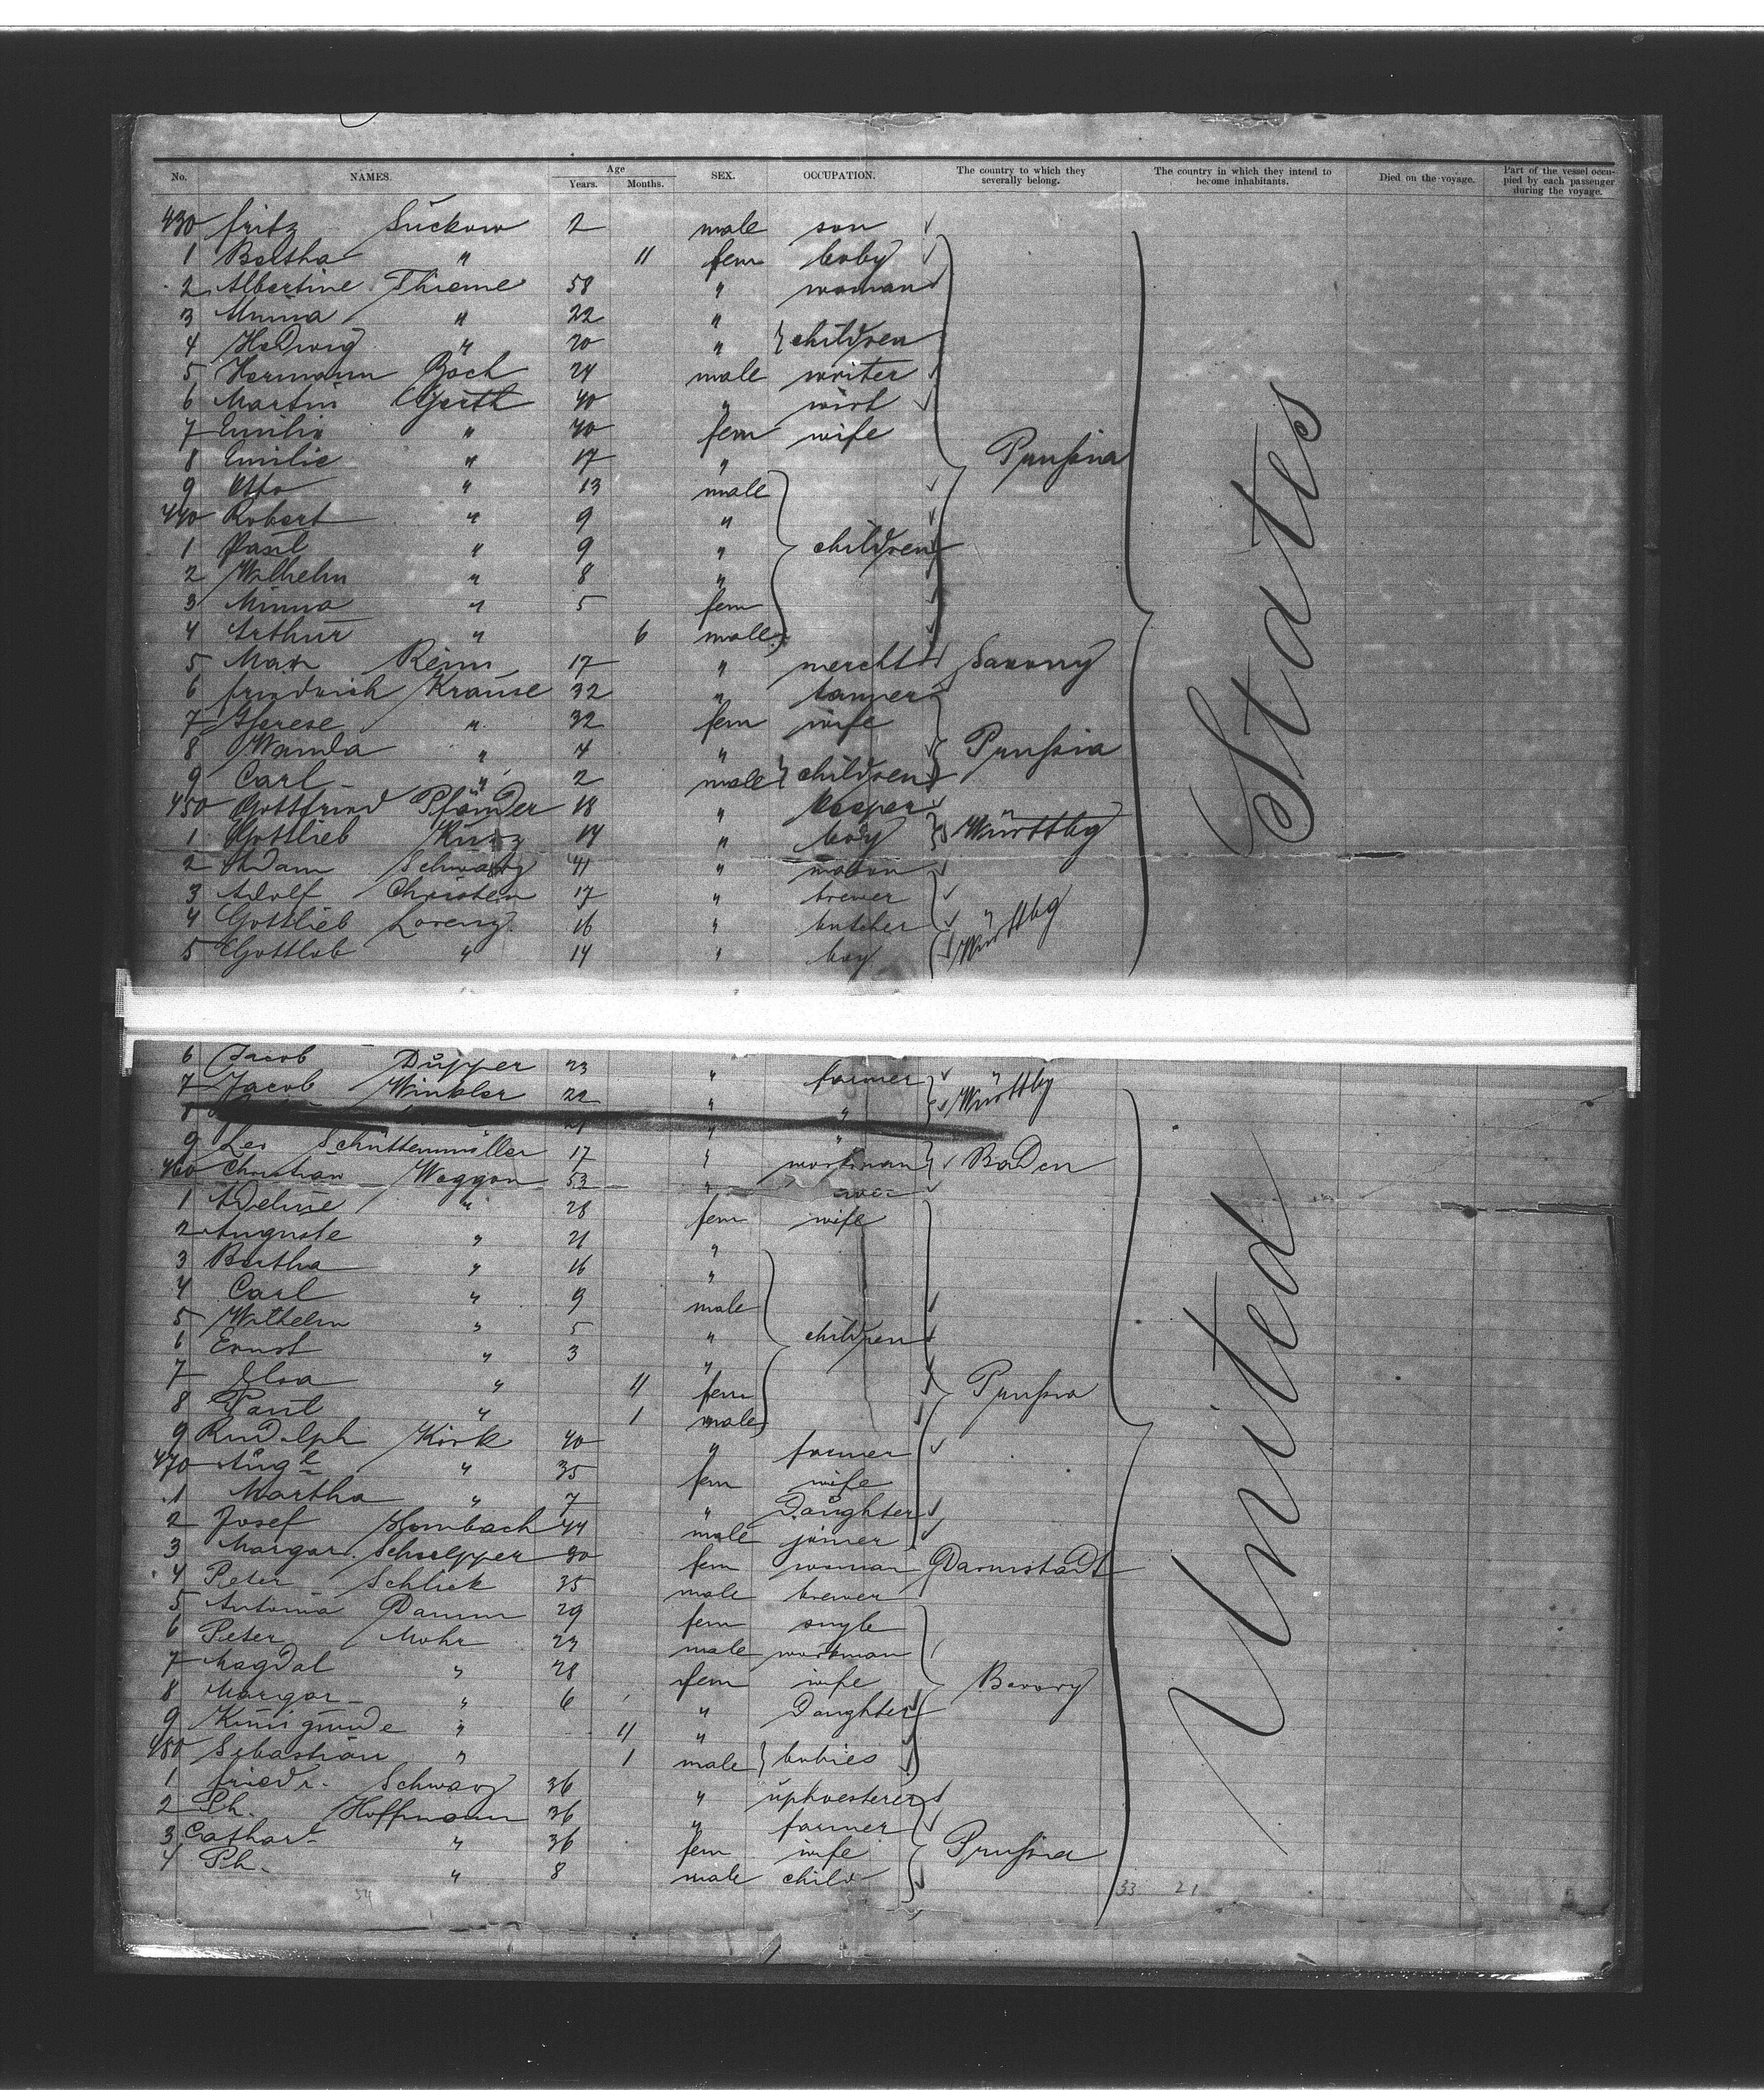 No. NAMES. Age Years. Months. SEX. OCCUPATION. The country to which they severally belong. The country in which they intend to become inhabitants. Died on the voyage. Part of the vessel occupied by each passenger during the voyage.
430 Fritz Suckow 2 male son
1 Bertha " 11 fem baby
2 Albertine Thieme 58 " woman
3 Minna " 22 "
4 Hedwig " 20 " children
5 Hermann Boch 24 male writer
6 Martin Gerth 40 " wirt
7 Emilie " 40 fem wife
8 Emilie " 17 " Prussia
9 Otto " 13 male
440 Robert " 9 "
1 Paul " 9 " children
2 Wilhelm " 8 "
3 Minna " 5 fem
4 Arthur " 6 male
5 Max Reim 17 " mercht Saxony
6 Friedrich Krause 32 " tanner
7 Therese " 32 fem wife
8 Wamla " 4 " Prussia
9 Carl " 2 male children
450 Gottfried Pfänder 18 "
1 Gottlieb Kurz 14 " boy Württbg
2 Adam Schwarz 41 " mason
3 Adolf Christen 17 " brewer
4 Gottlieb Lorenz 16 " butcher Württbg
5 Gottlob " 14 " boy
6 Jacob Dupper 23 " farmer
7 Jacob Winkler 22 " " Württbg
8 21 " "
9 Leo Schuttenmüller 17 " workman Baden
460 Christian Waggon 53 "
1 Adeline " 28 fem wife
2 Auguste " 21 "
3 Bertha " 16 "
4 Carl " 9 male
5 Wilhelm " 5 " children
6 Ernst " 3 "
7 Elsa " 11 fem Prussia
8 Paul " 1 male
9 Rudolph Kirk 40 " farmer
470 Auge " 35 fem wife
1 Martha " 7 " Daughter
2 Josef Hombach 44 male joiner
3 Margar. Schoelpper 30 fem woman Darmstadt
4 Peter Schlick 35 male brewer
5 Antonia Damm 29 fem single
6 Peter Mohr 23 male workman
7 Magdal " 28 fem wife Bavary
8 Margar " 6 " Daughter
9 Kunigunde " 11 "
480 Sebastian " 1 male babies
1 Friedr. Schwarz 36 " upholsterer
2 Ph. Hoffmann 36 " farmer
3 Cathar " 36 fem wife Prussia
4 Ph. " 8 male child
United States
54 33 21